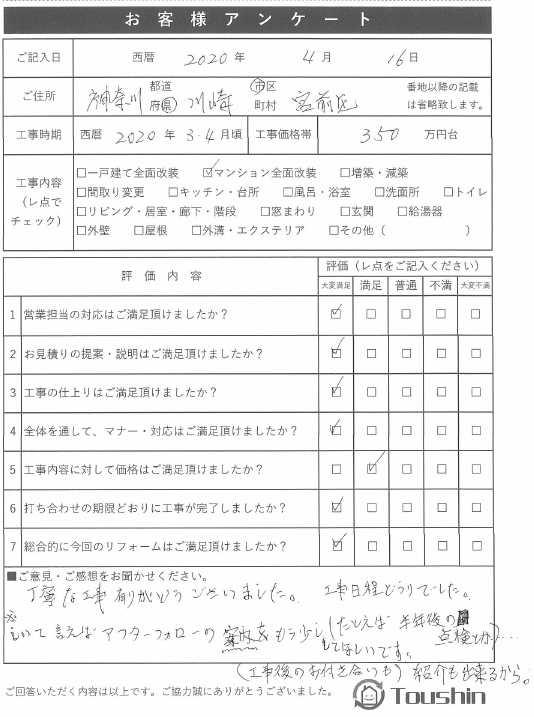 お客様アンケート
ご記入日 西暦 2020 年 4 月 16 日
ご住所 神奈川 都道府県 川崎 市区町村 宮前区 番地以降の記載は省略致します。
工事時期 西暦 2020 年 3-4 月頃 工事価格帯 350 万円台
工事内容（レ点でチェック）
□一戸建て全面改装 ☑マンション全面改装 □増築・減築
□間取り変更 □キッチン・台所 □風呂・浴室 □洗面所 □トイレ
□リビング・居室・廊下・階段 □窓まわり □玄関 □給湯器
□外壁 □屋根 □外溝・エクステリア □その他（ ）
評価内容 評価（レ点をご記入ください）
大変満足 満足 普通 不満 大変不満
1 営業担当の対応はご満足頂けましたか？ ☑ □ □ □ □
2 お見積りの提案・説明はご満足頂けましたか？ ☑ □ □ □ □
3 工事の仕上りはご満足頂けましたか？ ☑ □ □ □ □
4 全体を通して、マナー・対応はご満足頂けましたか？ ☑ □ □ □ □
5 工事内容に対して価格はご満足頂けましたか？ □ ☑ □ □ □
6 打ち合わせの期限どおりに工事が完了しましたか？ ☑ □ □ □ □
7 総合的に今回のリフォームはご満足頂けましたか？ ☑ □ □ □ □
■ご意見・ご感想をお聞かせください。
丁寧な工事 有りがとうございました。 工事日程どうりでした。
※しいて言えばアフターフォローの案内をもう少し（たとえば 半年後の点検とか）…
してほしいです。
（工事後のお付き合いも）紹介も出来るから。
ご回答いただく内容は以上です。ご協力誠にありがとうございました。
Toushin